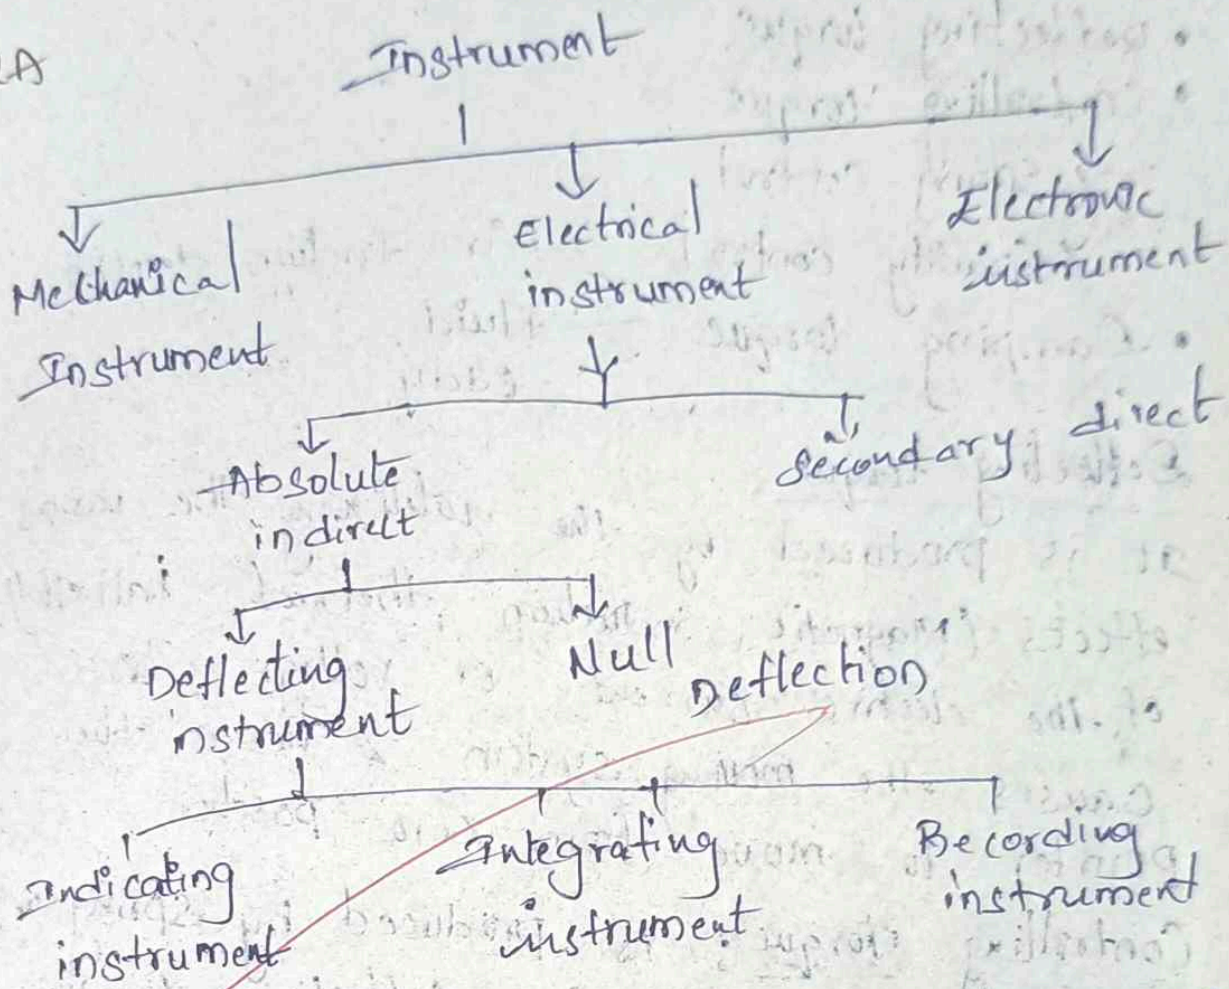 Instrument
Mechanical
Instrument
Electrical
instrument
Electronic
instrument
Absolute
indirect
Secondary direct
Deflecting
instrument
Null
Deflection
Indicating
instrument
Integrating
instrument
Recording
instrument